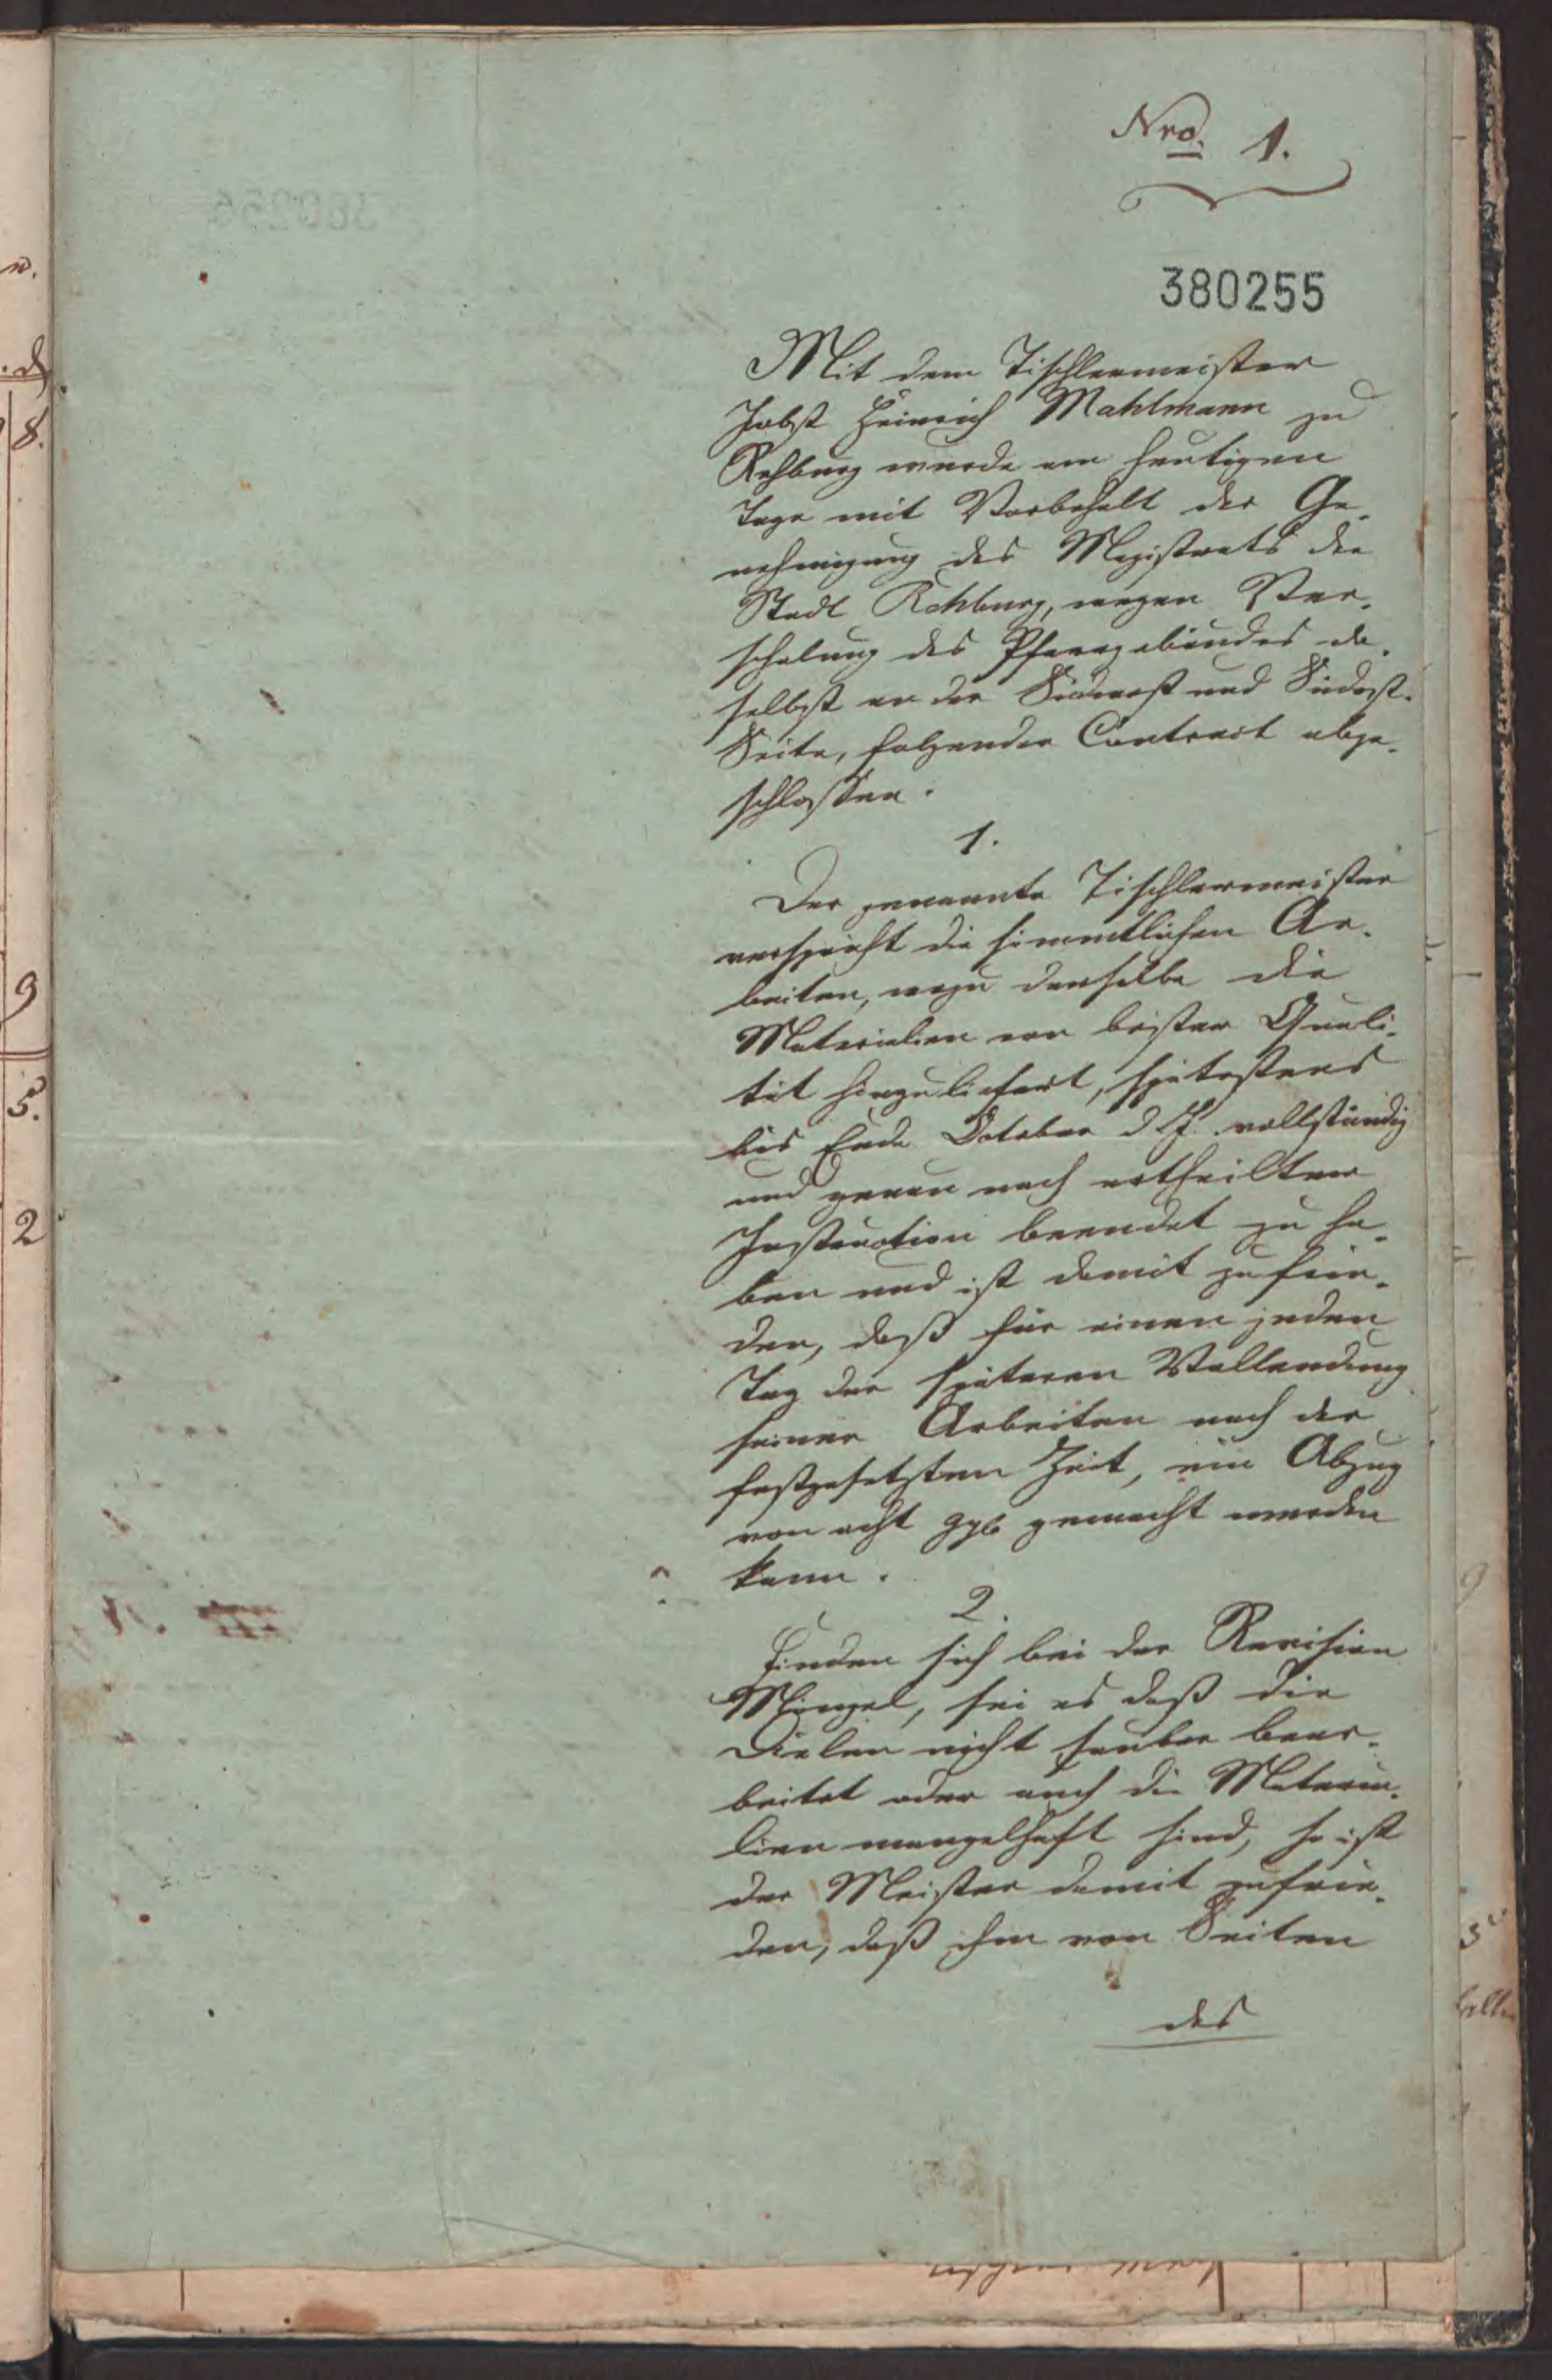 Nro. 1.
380255
Mit dem Tischlermeister
Jobst Heinrich Mahlmann zu
Rehburg wurde am heutigen
Tage mit Vorbehalt der Ge-
nehmigung des Magistrats der
Stadt Rehburg, wegen Ver-
schalung des Pfarrgebäudes da-
selbst an der Südwest und Südost-
Seite, folgender Contract abge-
schlossen.
1.
Der genannte Tischlermeister
verspricht die sämmtlichen Ar-
beiten, wozu derselbe die
Materialien von bester Quali-
tät hinzuliefert, spätestens
bis Ende October d. J. vollständig
und genau nach ertheilter
Instruction beendet zu ha-
ben und ist damit zufrie-
den, daß für einen jeden
Tag der späteren Vollendung
seiner Arbeiten nach der
festgesetzten Zeit, ein Abzug
von acht ggr gemacht werden
kann.
2.
Finden sich bei der Revision
Mängel, sei es daß die
Dielen nicht sauber bear-
beitet oder auch die Materia-
lien mangelhaft sind, so ist
der Meister damit zufrie-
den, daß ihm von Seiten
des
8.
9
5.
2